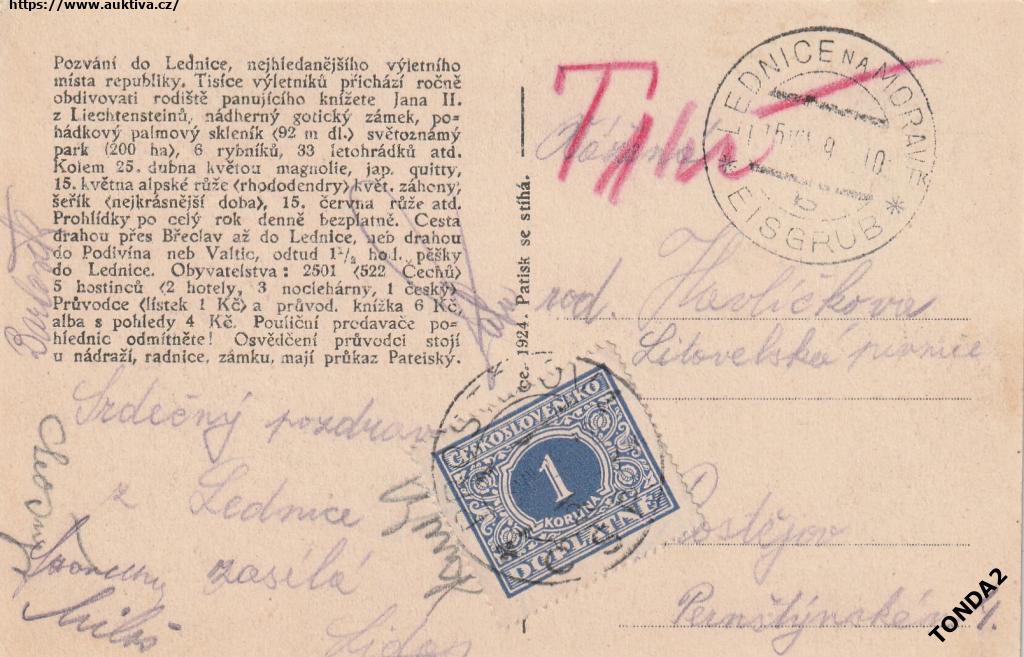 https://www.auktiva.cz/
Pozvání do Lednice, nejhledanějšího výletního
místa republiky. Tisíce výletníků přichází ročně
obdivovati rodiště panujícího knížete Jana II.
z Liechtensteinů, nádherný gotický zámek, po-
hádkový palmový skleník (92 m dl.) světoznámý
park (200 ha), 6 rybníků, 33 letohrádků atd.
Kolem 25. dubna květou magnolie, jap. quitty,
15. května alpské růže (rhododendry) květ. záhony;
šeřík (nejkrásnější doba), 15. června růže atd.
Prohlídky po celý rok denně bezplatně. Cesta
drahou přes Břeclav až do Lednice, neb drahou
do Podivína neb Valtic, odtud 1½ hod. pěšky
do Lednice. Obyvatelstva: 2501 (522 Čechů)
5 hostinců (2 hotely, 3 noclehárny, 1 český)
Průvodce (lístek 1 Kč) a průvod. knížka 6 Kč,
alba s pohledy 4 Kč. Pouliční prodavače po-
hlednic odmítněte! Osvědčení průvodci stojí
u nádraží, radnice, zámku, mají průkaz Pateiský.
ce. 1924. Patisk se stíhá.
LEDNICE NA MORAVĚ
* EISGRUB *
b
T
rod. Havlíčkova
Litovelská pivnice
Prostějov
Pernštýnské n. 4.
Srdečný pozdrav
z Lednice
zasílá
ČESKOSLOVENSKO
1
KORUNA
DOPLATNÉ
TONDA2